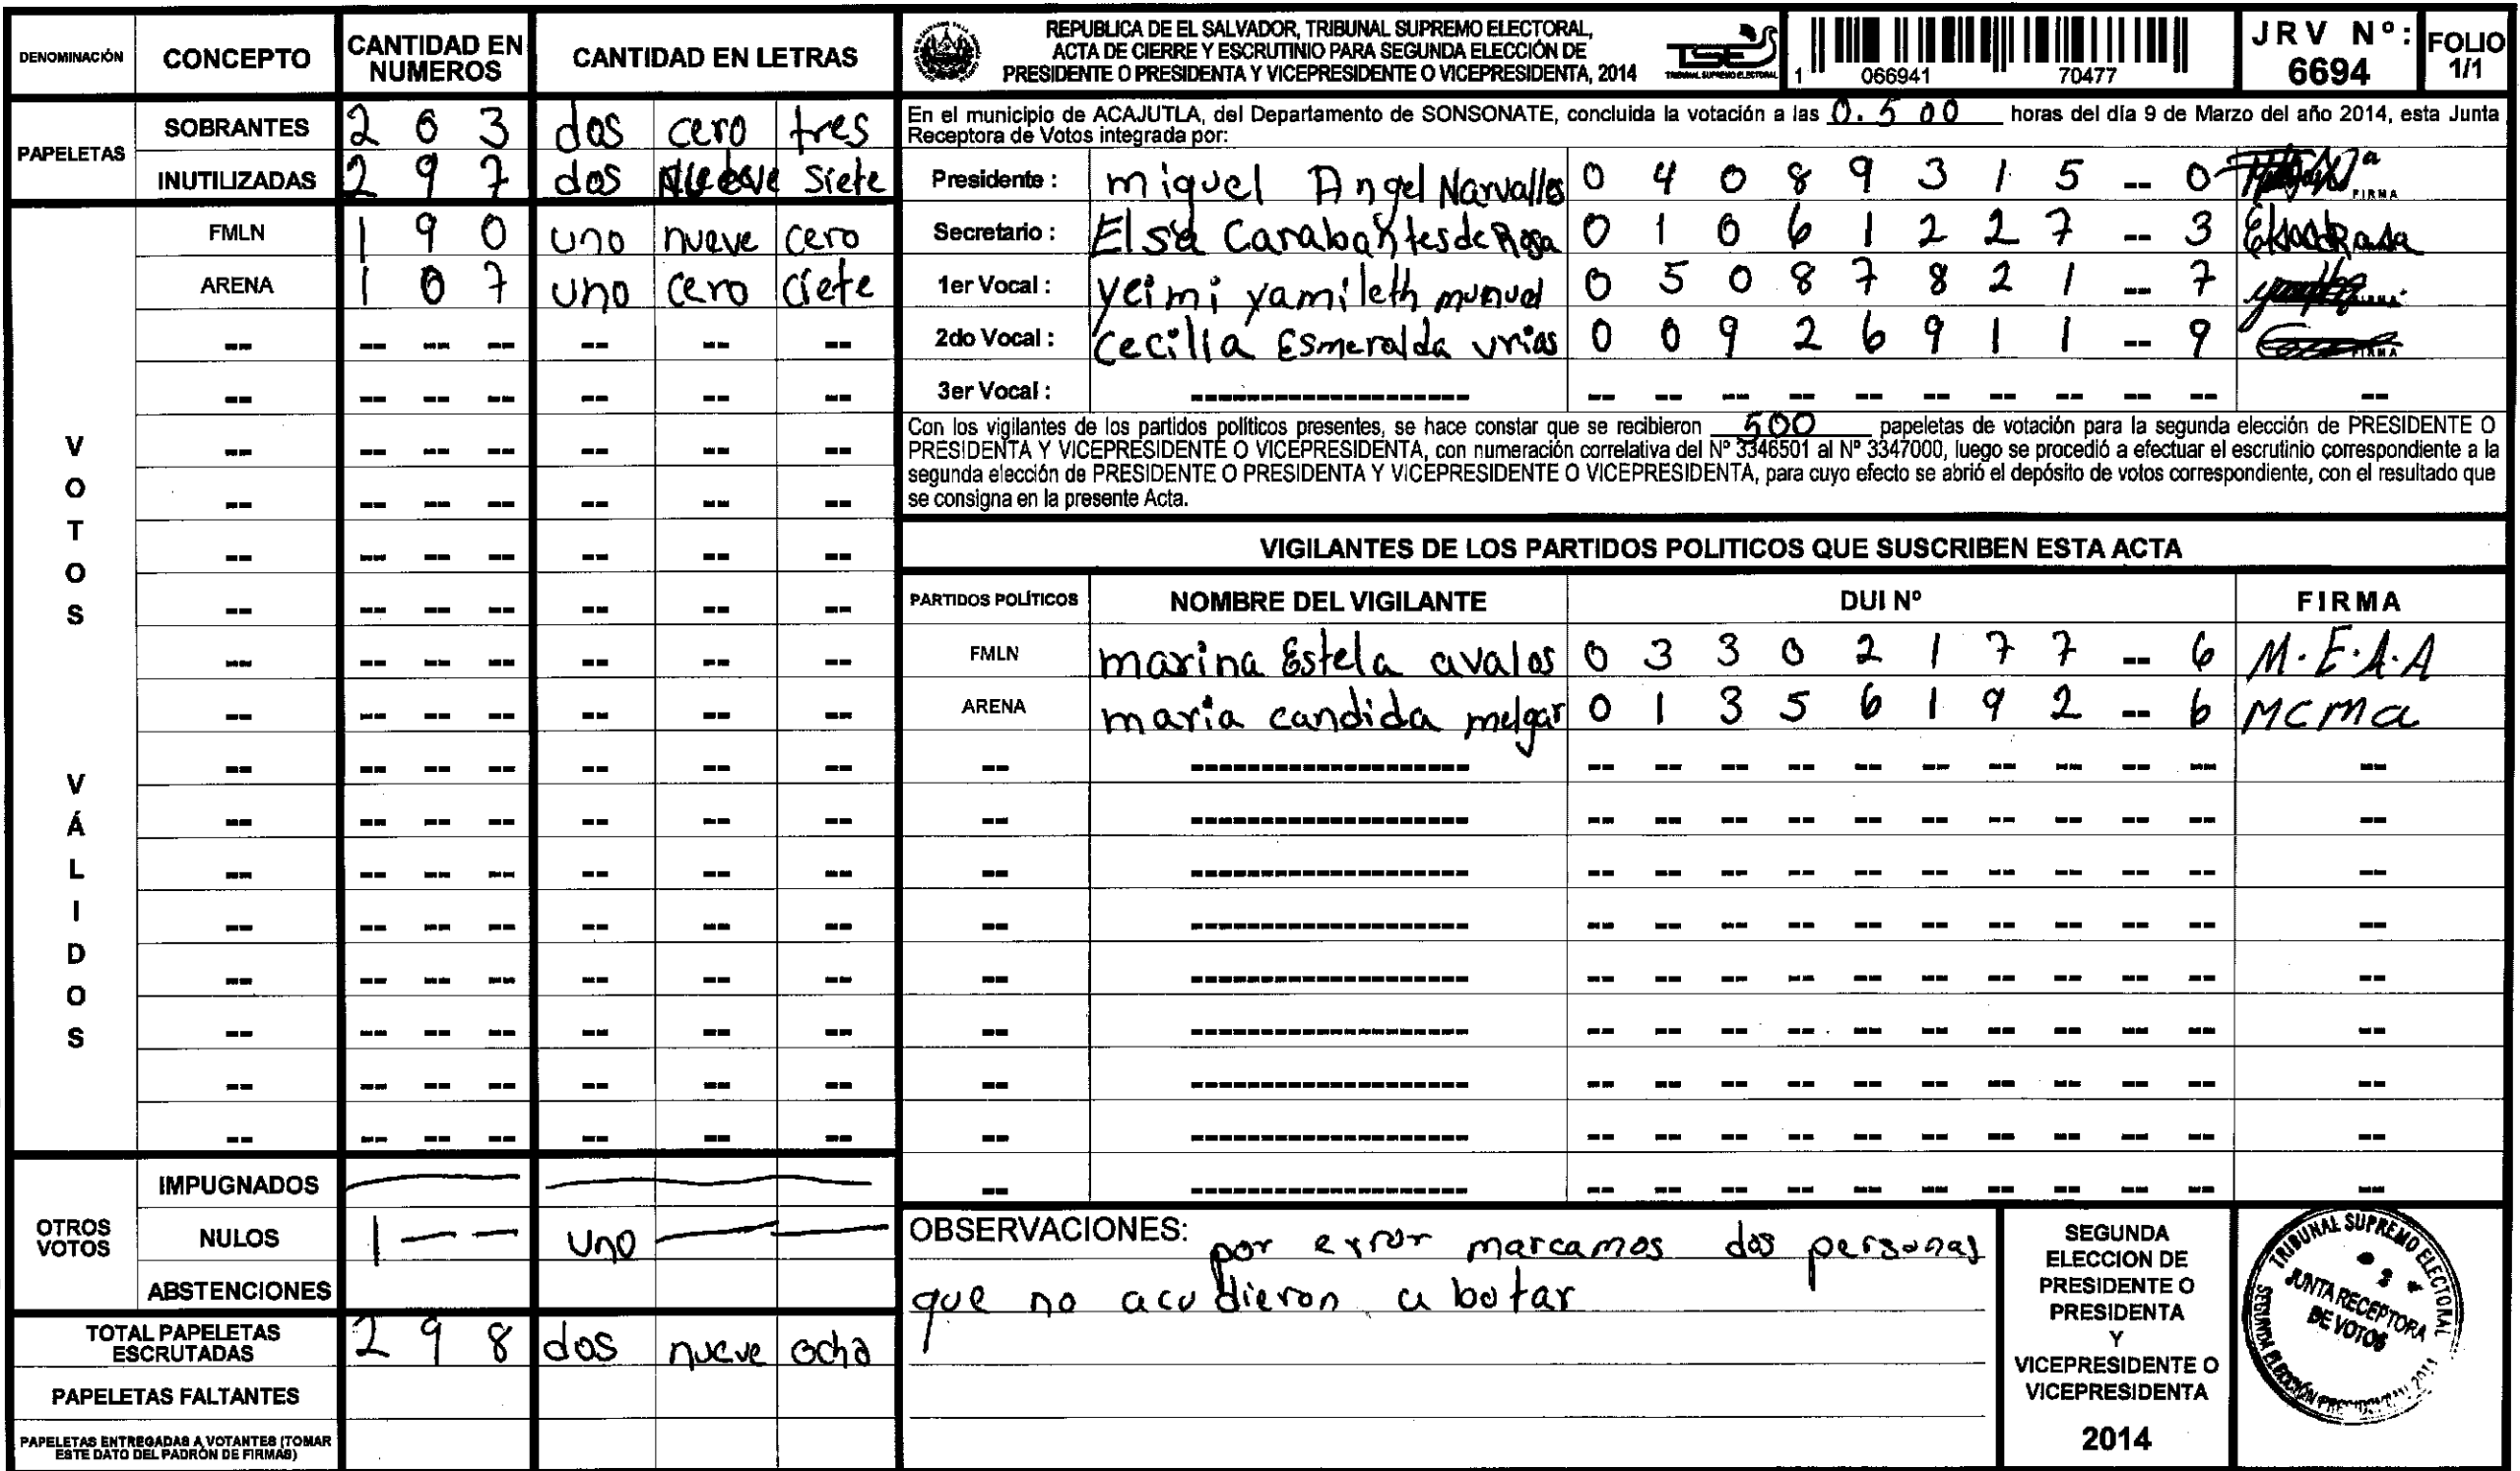 DENOMINACIÓN CONCEPTO CANTIDAD EN NUMEROS CANTIDAD EN LETRAS
PAPELETAS
SOBRANTES 2 0 3 dos cero tres
INUTILIZADAS 2 9 7 dos nueve siete
VOTOS VÁLIDOS
FMLN 1 9 0 uno nueve cero
ARENA 1 0 7 uno cero ciete
OTROS VOTOS
IMPUGNADOS
NULOS 1 -- -- uno
ABSTENCIONES
TOTAL PAPELETAS ESCRUTADAS 2 9 8 dos nueve ocho
PAPELETAS FALTANTES
PAPELETAS ENTREGADAS A VOTANTES (TOMAR
ESTE DATO DEL PADRÓN DE FIRMAS)
REPUBLICA DE EL SALVADOR, TRIBUNAL SUPREMO ELECTORAL,
ACTA DE CIERRE Y ESCRUTINIO PARA SEGUNDA ELECCIÓN DE
PRESIDENTE O PRESIDENTA Y VICEPRESIDENTE O VICEPRESIDENTA, 2014
TSE
TRIBUNAL SUPREMO ELECTORAL
1 066941 70477
JRV Nº: 6694
FOLIO 1/1
En el municipio de ACAJUTLA, del Departamento de SONSONATE, concluida la votación a las 0.500 horas del día 9 de Marzo del año 2014, esta Junta
Receptora de Votos integrada por:
Presidente : miguel Angel Narvalles 0 4 0 8 9 3 1 5 -- 0 FIRMA
Secretario : Elsa Carabantes de Rosa 0 1 0 6 1 2 2 7 -- 3
1er Vocal : yeimi yamileth 0 5 0 8 7 8 2 1 -- 7
2do Vocal : Cecilia Esmeralda urias 0 0 9 2 6 9 1 1 -- 9 FIRMA
3er Vocal :
Con los vigilantes de los partidos políticos presentes, se hace constar que se recibieron 500 papeletas de votación para la segunda elección de PRESIDENTE O
PRESIDENTA Y VICEPRESIDENTE O VICEPRESIDENTA, con numeración correlativa del Nº 3346501 al Nº 3347000, luego se procedió a efectuar el escrutinio correspondiente a la
segunda elección de PRESIDENTE O PRESIDENTA Y VICEPRESIDENTE O VICEPRESIDENTA, para cuyo efecto se abrió el depósito de votos correspondiente, con el resultado que
se consigna en la presente Acta.
VIGILANTES DE LOS PARTIDOS POLITICOS QUE SUSCRIBEN ESTA ACTA
PARTIDOS POLÍTICOS NOMBRE DEL VIGILANTE DUI Nº FIRMA
FMLN marina Estela avalos 0 3 3 0 2 1 7 7 -- 6 M.E.A.A
ARENA maria candida melgar 0 1 3 5 6 1 9 2 -- 6 MCMa
OBSERVACIONES: por error marcamos dos personas
que no acudieron a botar
SEGUNDA
ELECCION DE
PRESIDENTE O
PRESIDENTA
Y
VICEPRESIDENTE O
VICEPRESIDENTA
2014
TRIBUNAL SUPREMO ELECTORAL
JUNTA RECEPTORA
DE VOTOS
SEGUNDA ELECCIÓN PRESIDENCIAL 2014